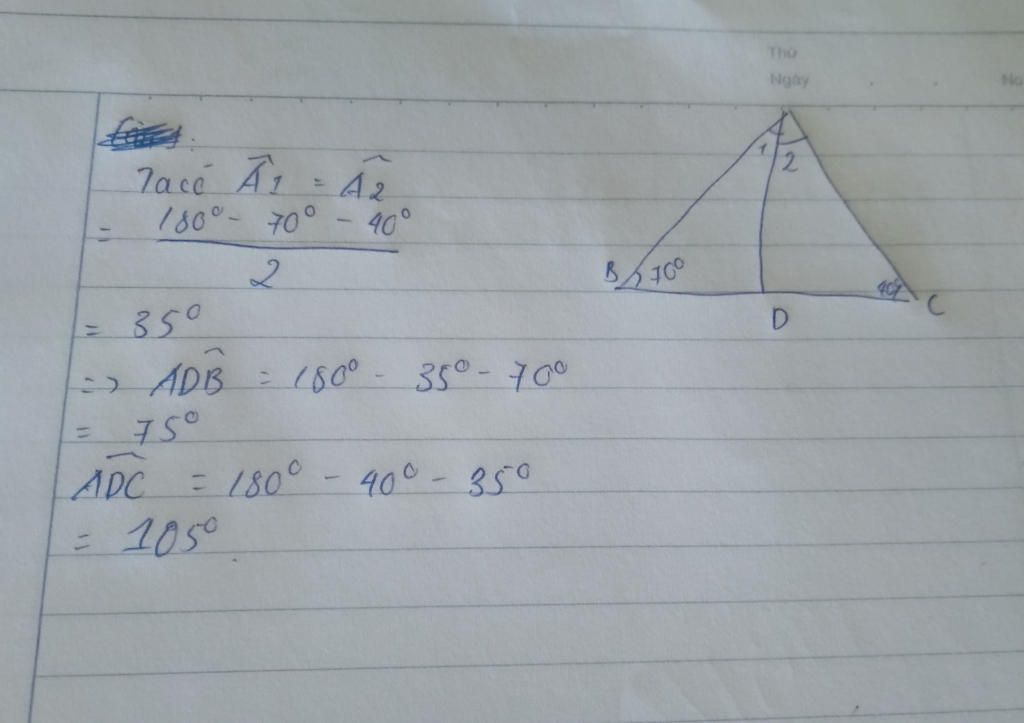 Thứ
Ngày
No
Ta có Â1 = Â2
= (180° - 70° - 40°) / 2
= 35°
=> ADB̂ = 180° - 35° - 70°
= 75°
ADĈ = 180° - 40° - 35°
= 105°
1 2
B 70° 40° C
D